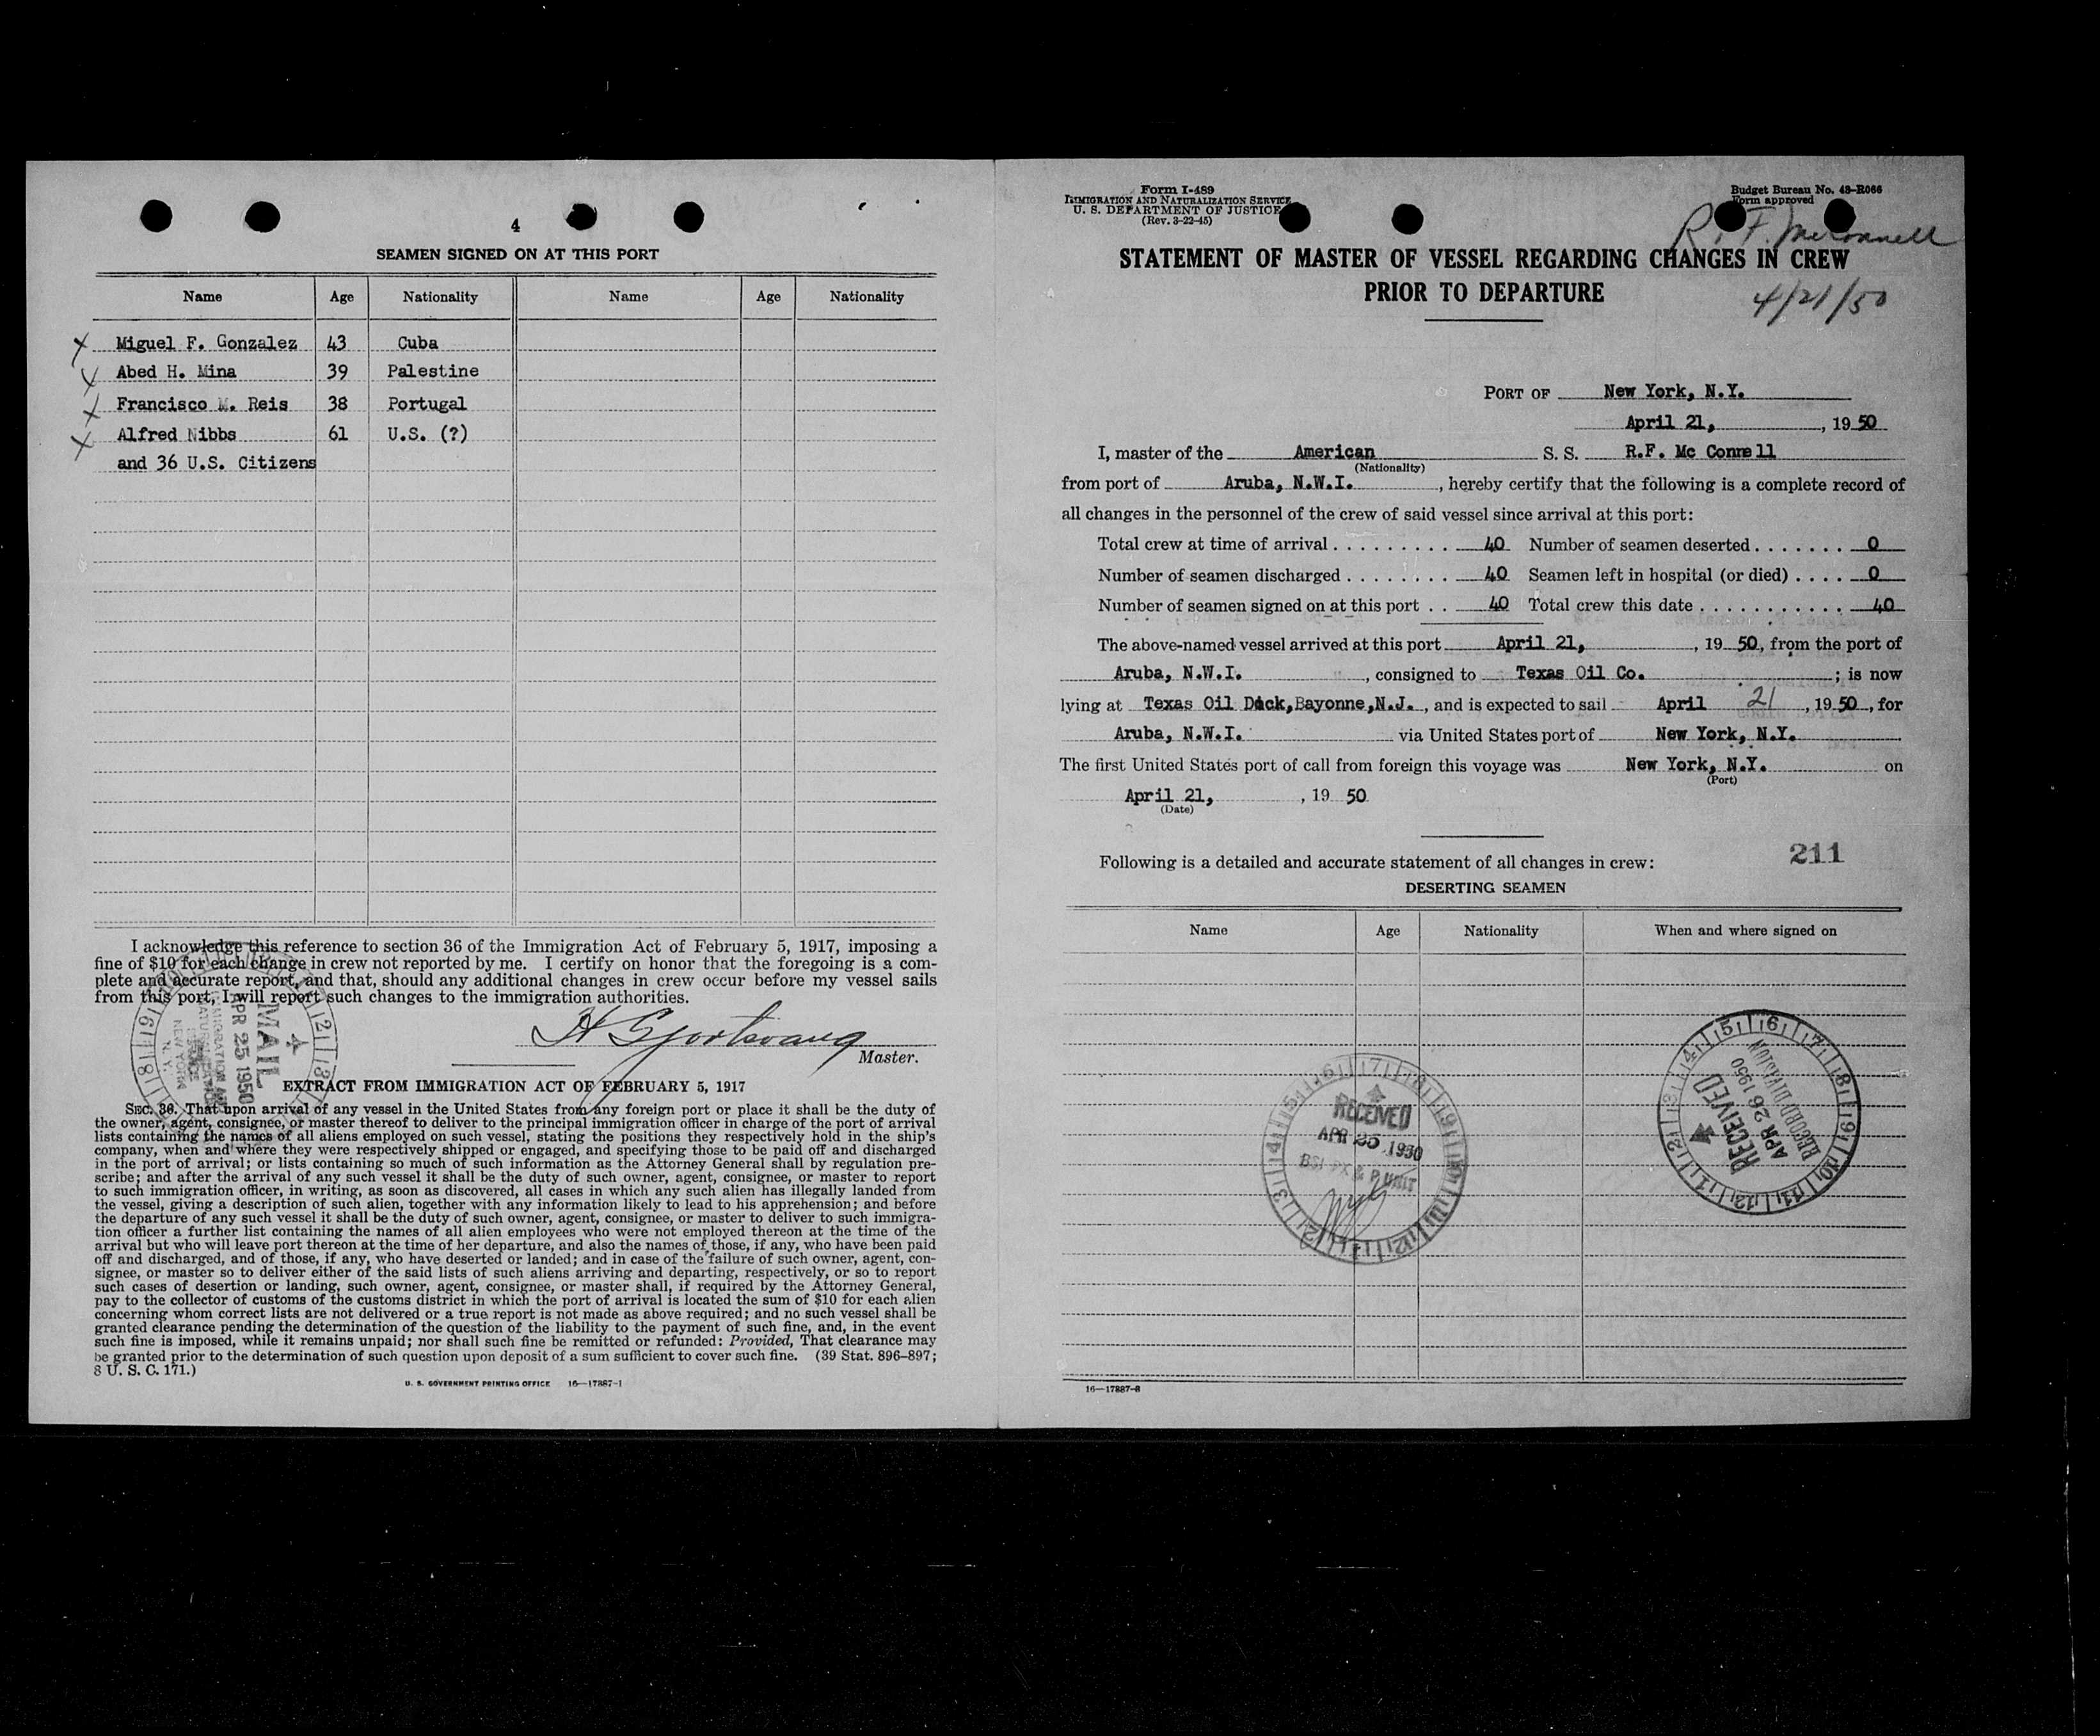 4
SEAMEN SIGNED ON AT THIS PORT
Name Age Nationality Name Age Nationality
Miguel F. Gonzalez 43 Cuba
Abed H. Mina 39 Palestine
Francisco M. Reis 38 Portugal
Alfred Nibbs 61 U.S. (?)
and 36 U.S. Citizens
I acknowledge this reference to section 36 of the Immigration Act of February 5, 1917, imposing a
fine of $10 for each change in crew not reported by me. I certify on honor that the foregoing is a com-
plete and accurate report, and that, should any additional changes in crew occur before my vessel sails
from this port, I will report such changes to the immigration authorities.
Master.
MAIL
APR 25 1950
NEW YORK
N.Y.
EXTRACT FROM IMMIGRATION ACT OF FEBRUARY 5, 1917
SEC. 36. That upon arrival of any vessel in the United States from any foreign port or place it shall be the duty of
the owner, agent, consignee, or master thereof to deliver to the principal immigration officer in charge of the port of arrival
lists containing the names of all aliens employed on such vessel, stating the positions they respectively hold in the ship's
company, when and where they were respectively shipped or engaged, and specifying those to be paid off and discharged
in the port of arrival; or lists containing so much of such information as the Attorney General shall by regulation pre-
scribe; and after the arrival of any such vessel it shall be the duty of such owner, agent, consignee, or master to report
to such immigration officer, in writing, as soon as discovered, all cases in which any such alien has illegally landed from
the vessel, giving a description of such alien, together with any information likely to lead to his apprehension; and before
the departure of any such vessel it shall be the duty of such owner, agent, consignee, or master to deliver to such immigra-
tion officer a further list containing the names of all alien employees who were not employed thereon at the time of the
arrival but who will leave port thereon at the time of her departure, and also the names of those, if any, who have been paid
off and discharged, and of those, if any, who have deserted or landed; and in case of the failure of such owner, agent, con-
signee, or master so to deliver either of the said lists of such aliens arriving and departing, respectively, or so to report
such cases of desertion or landing, such owner, agent, consignee, or master shall, if required by the Attorney General,
pay to the collector of customs of the customs district in which the port of arrival is located the sum of $10 for each alien
concerning whom correct lists are not delivered or a true report is not made as above required; and no such vessel shall be
granted clearance pending the determination of the question of the liability to the payment of such fine, and, in the event
such fine is imposed, while it remains unpaid; nor shall such fine be remitted or refunded: Provided, That clearance may
be granted prior to the determination of such question upon deposit of a sum sufficient to cover such fine. (39 Stat. 896–897;
8 U. S. C. 171.)
U. S. GOVERNMENT PRINTING OFFICE 16—17887-1
Form I-489
IMMIGRATION AND NATURALIZATION SERVICE
U. S. DEPARTMENT OF JUSTICE
(Rev. 3-22-45)
Budget Bureau No. 43-R066
Form approved
R. F. McConnell
STATEMENT OF MASTER OF VESSEL REGARDING CHANGES IN CREW
PRIOR TO DEPARTURE
4/21/50
PORT OF New York, N.Y.
April 21, , 19 50
I, master of the American S. S. R.F. Mc Connell
(Nationality)
from port of Aruba, N.W.I. , hereby certify that the following is a complete record of
all changes in the personnel of the crew of said vessel since arrival at this port:
Total crew at time of arrival . . . . . . . . . 40 Number of seamen deserted . . . . . . . 0
Number of seamen discharged . . . . . . . . 40 Seamen left in hospital (or died) . . . . 0
Number of seamen signed on at this port . . 40 Total crew this date . . . . . . . . . . . 40
The above-named vessel arrived at this port April 21, , 19 50, from the port of
Aruba, N.W.I. , consigned to Texas Oil Co. ; is now
lying at Texas Oil Dock, Bayonne, N.J. , and is expected to sail April 21 , 19 50 , for
Aruba, N.W.I. via United States port of New York, N.Y.
The first United States port of call from foreign this voyage was New York, N.Y. on
(Port)
April 21, , 19 50
(Date)
Following is a detailed and accurate statement of all changes in crew:
211
DESERTING SEAMEN
Name Age Nationality When and where signed on
RECEIVED
APR 25 1950
RECEIVED
APR 26 1950
RECORD DIVISION
16—17887-3